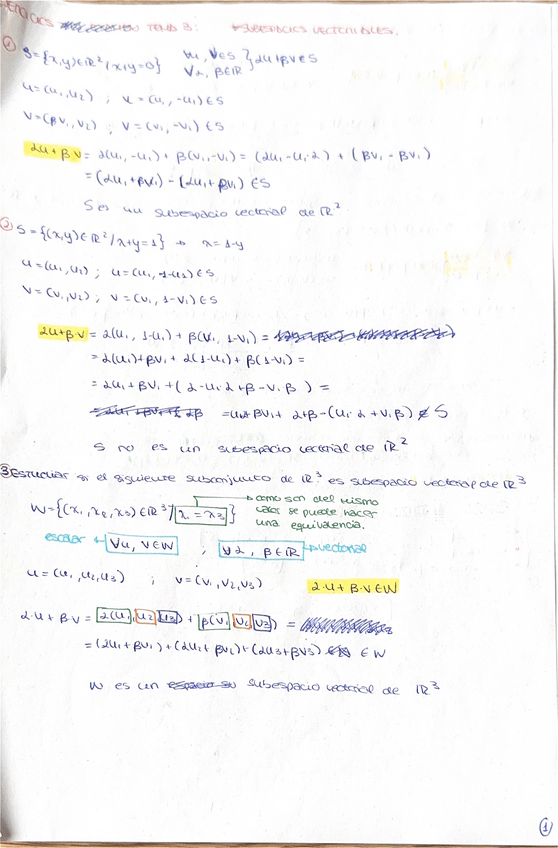 TEMA 3: SUBESPACIOS VECTORIALES.
① S={x,y)∈ℝ²/x+y=0} ∀u, v∈S ∀α, β∈ℝ } αu+βv∈S
u=(u₁,u₂) ; u=(u₁,-u₁)∈S
V=(βv₁,v₂) ; V=(v₁,-v₁)∈S
αu+βv= α(u₁,-u₁)+ β(v₁,-v₁)= (αu₁-u₁·α) + (βv₁-βv₁)
=(αu₁+βv₁)-(αu₁+βv₁) ∈S
S es un subespacio vectorial de ℝ²
② S={(x,y)∈ℝ²/x+y=1} → x=1-y
u=(u₁,u₂) ; u=(u₁, 1-u₁)∈S
V=(v₁,v₂) ; V=(v₁, 1-v₁)∈S
αu+β·v= α(u₁, 1-u₁)+β(v₁, 1-v₁)=
=α(u₁)+βv₁+ α(1-u₁)+β(1-v₁)=
=αu₁+βv₁+(α-u₁·α+β-v₁·β)=
=u₁+βv₁+ α+β-(u₁·α+v₁β) ∉ S
S no es un subespacio vectorial de ℝ²
③ Estudiar si el siguiente subconjunto de ℝ³ es subespacio vectorial de ℝ³
W={(x₁,x₂,x3)∈ℝ³/ x₁=x3} → como son del mismo
valor se puede hacer
una equivalencia.
escalar ← ∀u, v∈W ; ∀α, β∈ℝ → vectorial
u=(u₁,u₂,u3) ; v=(v₁,v₂,v3) α·u+β·v∈W
α·u+β·v= α(u₁,u₂,u3)+β(v₁,v₂,v3) =
=(αu₁+βv₁)+(αu₂+βv₂)+(αu3+βv3) ∈W
W es un subespacio vectorial de ℝ³
①